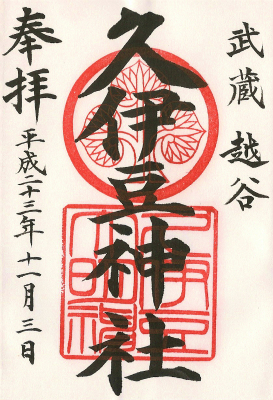 武蔵 越谷
久伊豆神社
奉拝
平成二十三年十一月三日